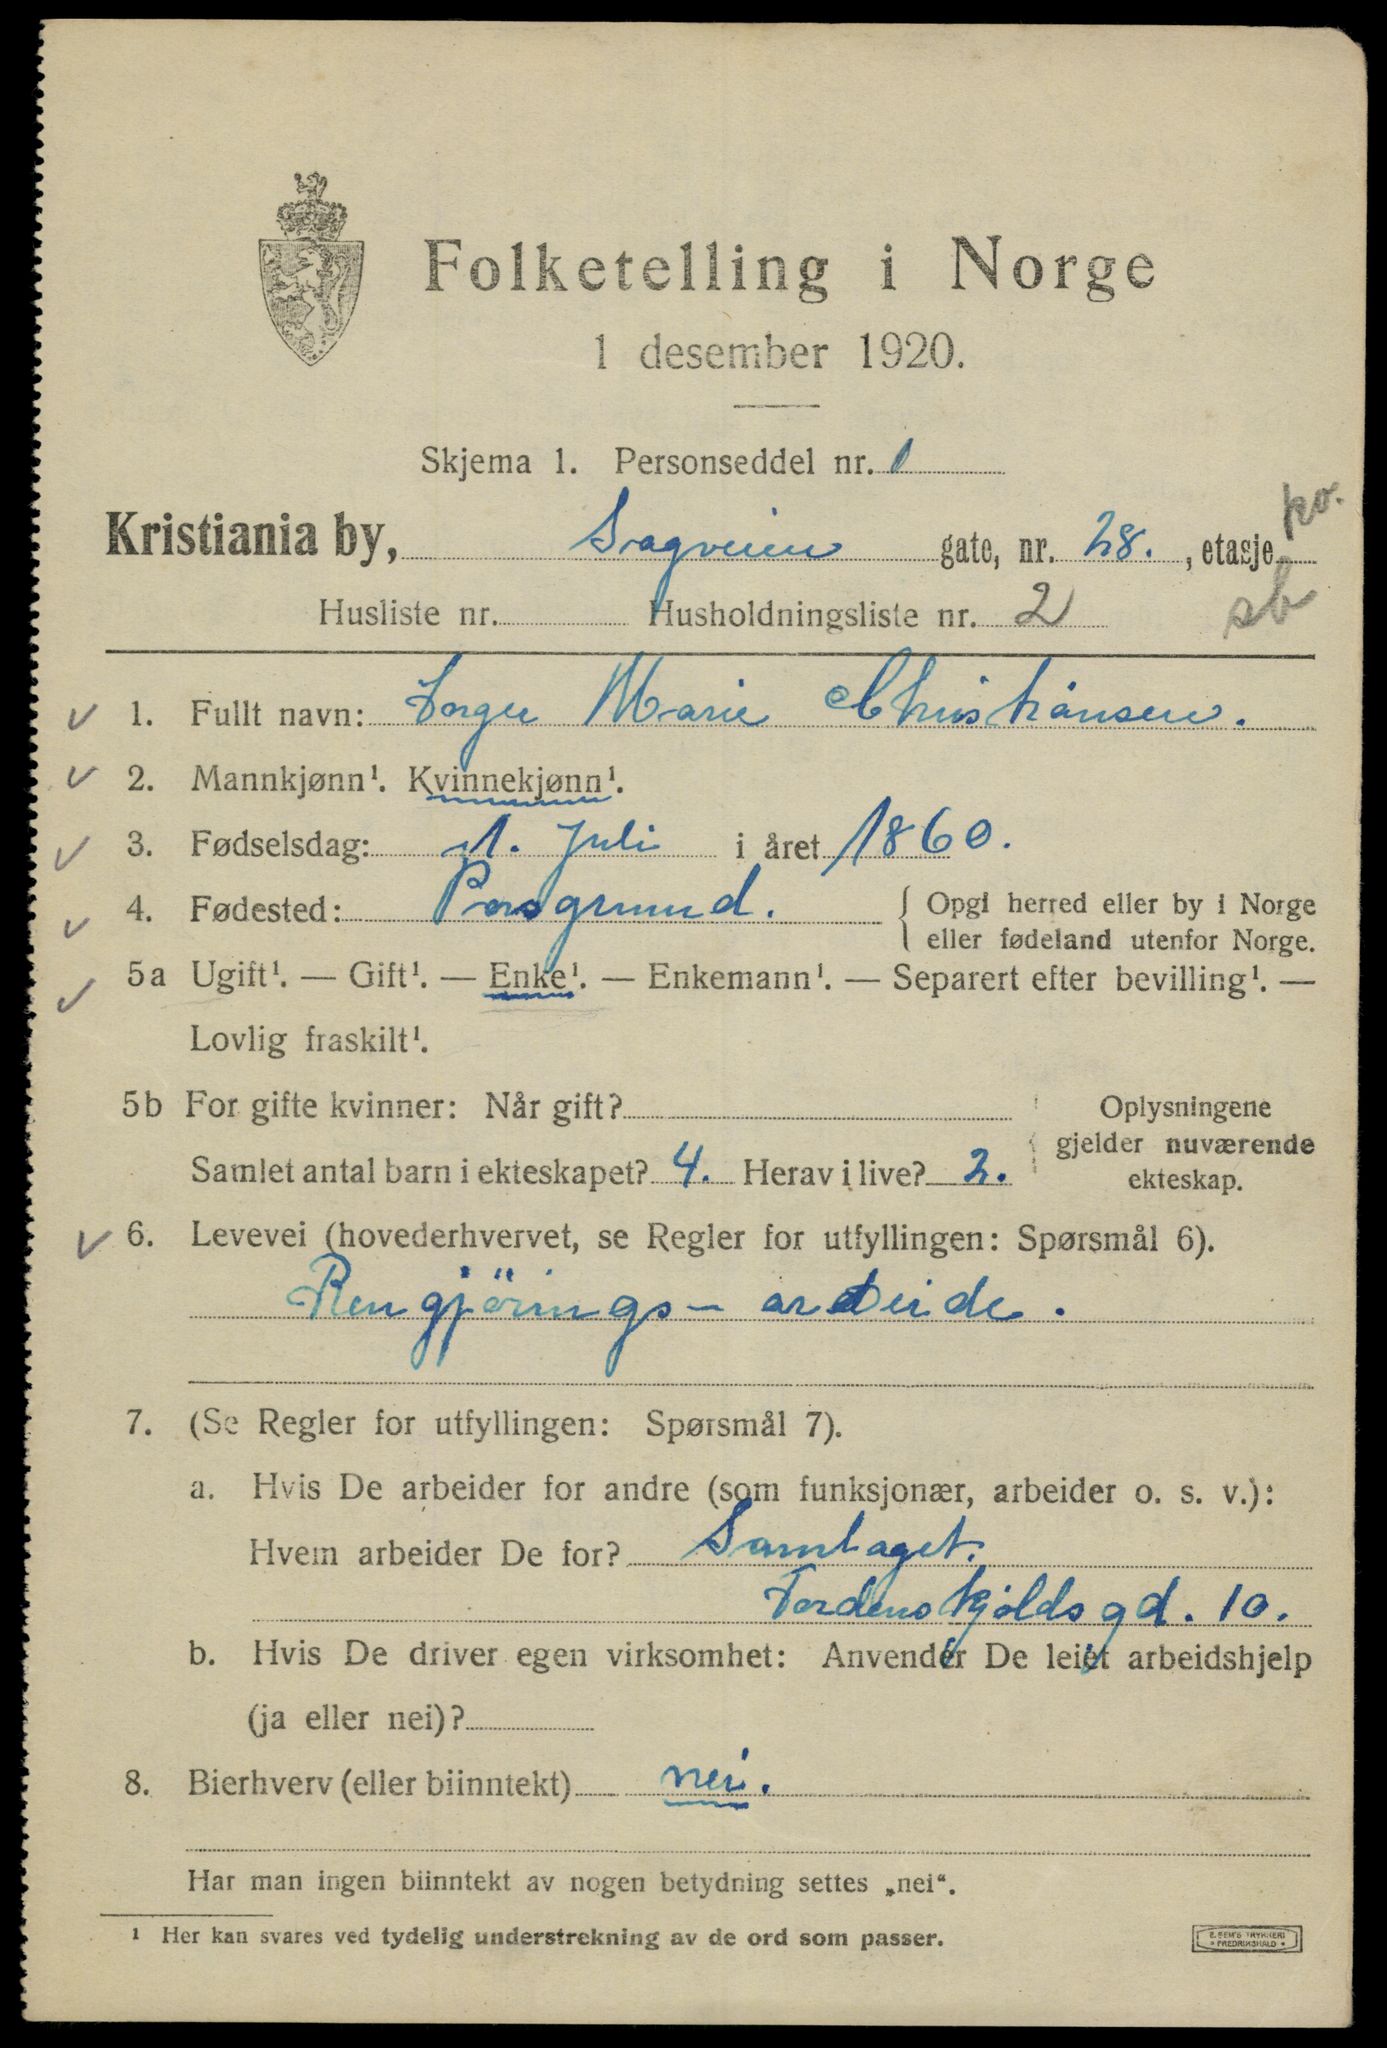 Folketelling i Norge
1 desember 1920.
Skjema 1. Personseddel nr. 1
Kristiania by, Sagveien gate, nr. 28., etasje
Husliste nr. Husholdningsliste nr. 2
sb
1. Fullt navn: Marie Christiansen.
2. Mannkjønn¹. Kvinnekjønn¹.
3. Fødselsdag: 1. Juli i året 1860.
4. Fødested: Porsgrund. Opgi herred eller by i Norge
eller fødeland utenfor Norge.
5a Ugift¹. — Gift¹. — Enke¹. — Enkemann¹. — Separert efter bevilling¹. —
Lovlig fraskilt¹.
5b For gifte kvinner: Når gift?
Samlet antal barn i ekteskapet? 4. Herav i live? 2.
Oplysningene
gjelder nuværende
ekteskap.
6. Levevei (hovederhvervet, se Regler for utfyllingen: Spørsmål 6).
Rengjörings-arbeide.
7. (Se Regler for utfyllingen: Spørsmål 7).
a. Hvis De arbeider for andre (som funksjonær, arbeider o. s. v.):
Hvem arbeider De for? Samlaget.
Tordenskjoldsgd. 10.
b. Hvis De driver egen virksomhet: Anvender De leiet arbeidshjelp
(ja eller nei)?
8. Bierhverv (eller biinntekt) nei.
Har man ingen biinntekt av nogen betydning settes „nei“.
¹ Her kan svares ved tydelig understrekning av de ord som passer.
E. SEM'S TRYKKERI
• FREDRIKSHALD •